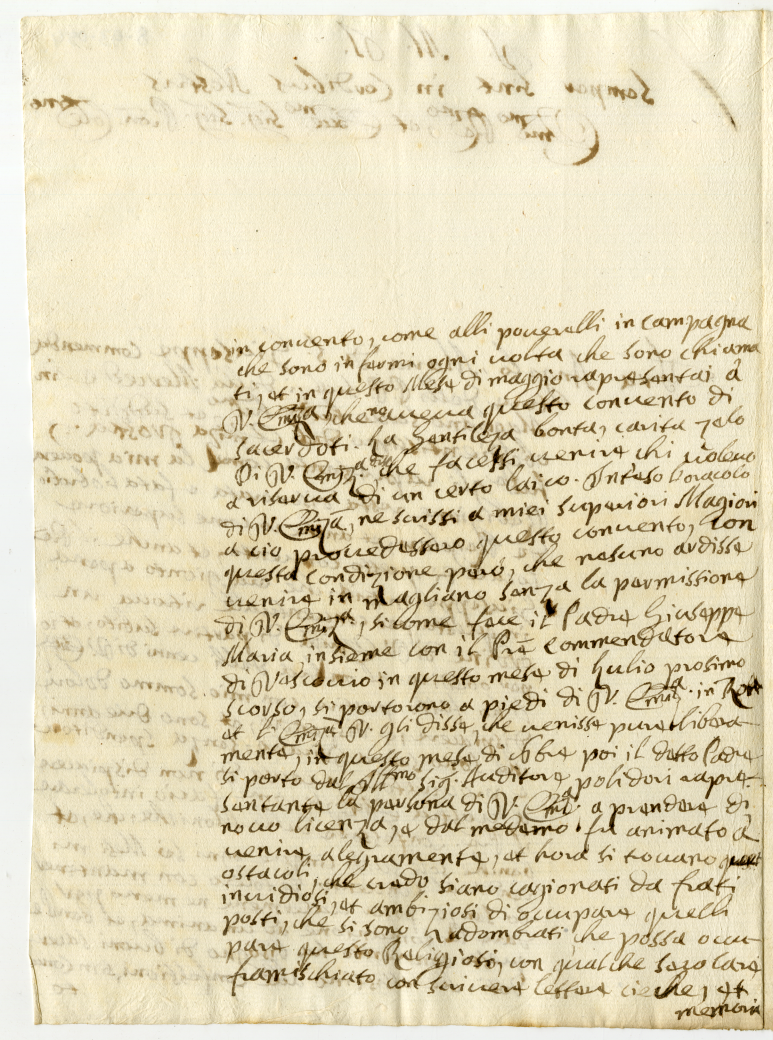 in convento, come alli poverelli in Campagna
che sono infermi ogni volta che sono chiama
ti, et in questo Mese di maggio rapresentai à
V. Emza, che aveva questo convento di
sacerdoti. ha gentileza bontà, carità zelo
di V. Emza che facessi venire chi volevo
a riserva di un certo laico. Inteso l'oracolo
di V. Emza, ne scrissi a miei superiori Magiori
a ciò provedessero questo convento, con
questa condizione però, che nesuno ardisse
venire in Magliano senza la permissione
di V. Emza, si come fece il Padre Giuseppe
Maria, insieme con il Pre Commendatore
di Vascovio in questo mese di Julio prosimo
scorso, si portorono a piedi di V. Emza in
et l' Emza V. gli disse, che venisse pure libera
mente, in questo mese di 8bre poi il detto Padre
si portò dal Illmo Sig. Auditore polidori rapre-
sentante la persona di V. Emza a prendere di
novo licenza, e dal medemo fu animato à
venire alegramente, et hora si trovano questi
ostacoli, che credo siano cagionati da frati
invidiosi, et ambiziosi di occupare quelli
posti, che si sono adombrati che possa occu-
pare questo Religioso, con qualche secolare
framischiato con scrivere lettere cieche, et
memoria